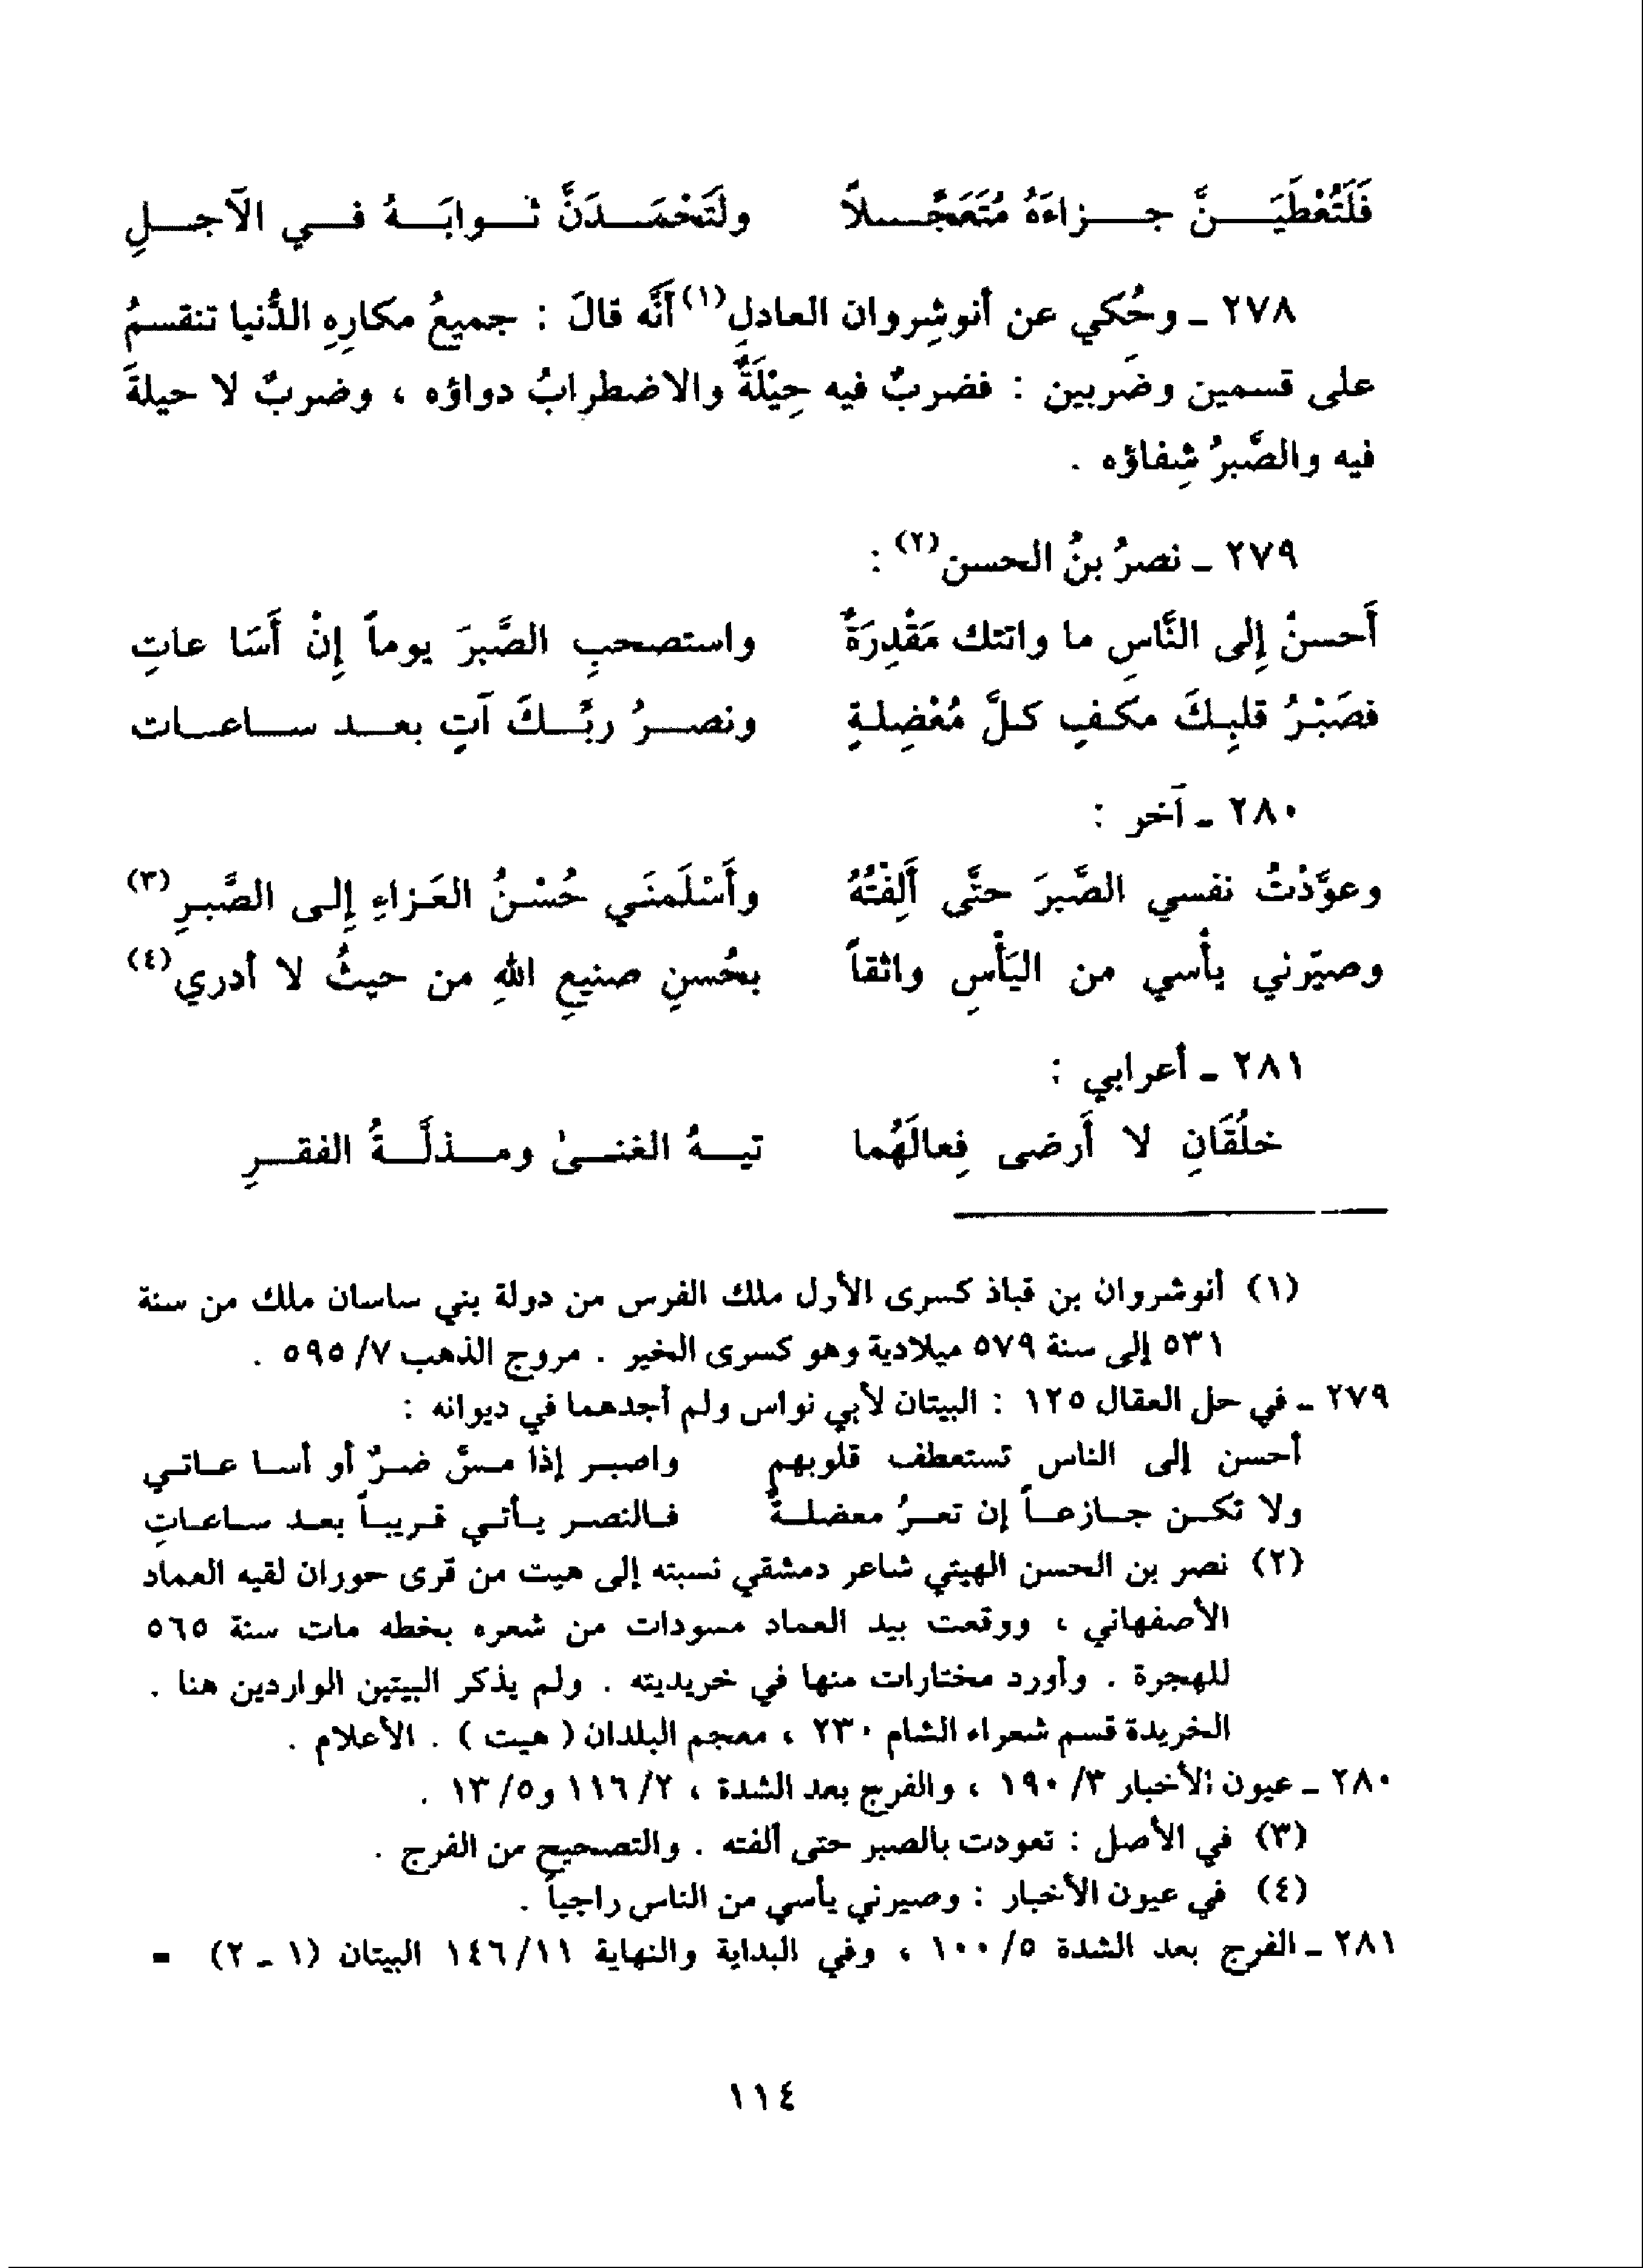 فَلَتُعْطَيَنَّ جزاءَهُ مُتَعَجَّلاً ولَتَحْمَدَنَّ ثوابَهُ في الآجلِ
٢٧٨ ـ وحُكي عن أنوشِروان العادلِ(١) أنَّه قالَ : جميعُ مكارِهِ الدُّنيا تنقسمُ
على قسمين وضَربين : فضربٌ فيه حِيْلَةٌ والاضطرابُ دواؤه ، وضربٌ لا حيلةَ
فيه والصَّبرُ شِفاؤه .
٢٧٩ ـ نصرُ بنُ الحسن(٢) :
أَحسنْ إِلى النَّاسِ ما واتتك مَقْدِرَةٌ واستصحبِ الصَّبرَ يوماً إِنْ أَسَا عاتِ
فصَبْرُ قلبِكَ مكفٍ كلَّ مُعْضِلةٍ ونصرُ ربِّكَ آتٍ بعد ساعات
٢٨٠ ـ آخر :
وعوَّدْتُ نفسي الصَّبرَ حتَّى أَلِفْتُهُ وأَسْلَمنَي حُسْنُ العَزاءِ إِلى الصَّبرِ(٣)
وصيّرني يأْسي من اليَأْسِ واثقاً بحُسنِ صنيعِ اللهِ من حيثُ لا أدري(٤)
٢٨١ ـ أعرابي :
خلُقَانِ لا أَرضى فِعالَهُما تيهُ الغنىٰ ومذلَّةُ الفقرِ
(١) أنوشروان بن قباذ كسرى الأول ملك الفرس من دولة بني ساسان ملك من سنة
٥٣١ إلى سنة ٥٧٩ ميلادية وهو كسرى الخير . مروج الذهب ٧/ ٥٩٥ .
٢٧٩ ـ في حل العقال ١٢٥ : البيتان لأبي نواس ولم أجدهما في ديوانه :
أحسن إلى الناس تستعطف قلوبهم واصبر إذا مسَّ ضرٌ أو أسا عاتي
ولا تكن جازعاً إن تعرُ معضلةٌ فالنصر يأتي قريباً بعد ساعاتِ
(٢) نصر بن الحسن الهيتي شاعر دمشقي نسبته إلى هيت من قرى حوران لقيه العماد
الأصفهاني ، ووقعت بيد العماد مسودات من شعره بخطه مات سنة ٥٦٥
للهجرة . وأورد مختارات منها في خريديته . ولم يذكر البيتين الواردين هنا .
الخريدة قسم شعراء الشام ٢٣٠ ، معجم البلدان ( هيت ) . الأعلام .
٢٨٠ ـ عيون الأخبار ٣/ ١٩٠ ، والفرج بعد الشدة ، ٢/ ١١٦ و٥/ ١٣ .
(٣) في الأصل : تعودت بالصبر حتى ألفته . والتصحيح من الفرج .
(٤) في عيون الأخبار : وصيرني يأسي من الناس راجياً .
٢٨١ ـ الفرج بعد الشدة ٥/ ١٠٠ ، وفي البداية والنهاية ١١/ ١٤٦ البيتان (١ ـ ٢) =
١١٤